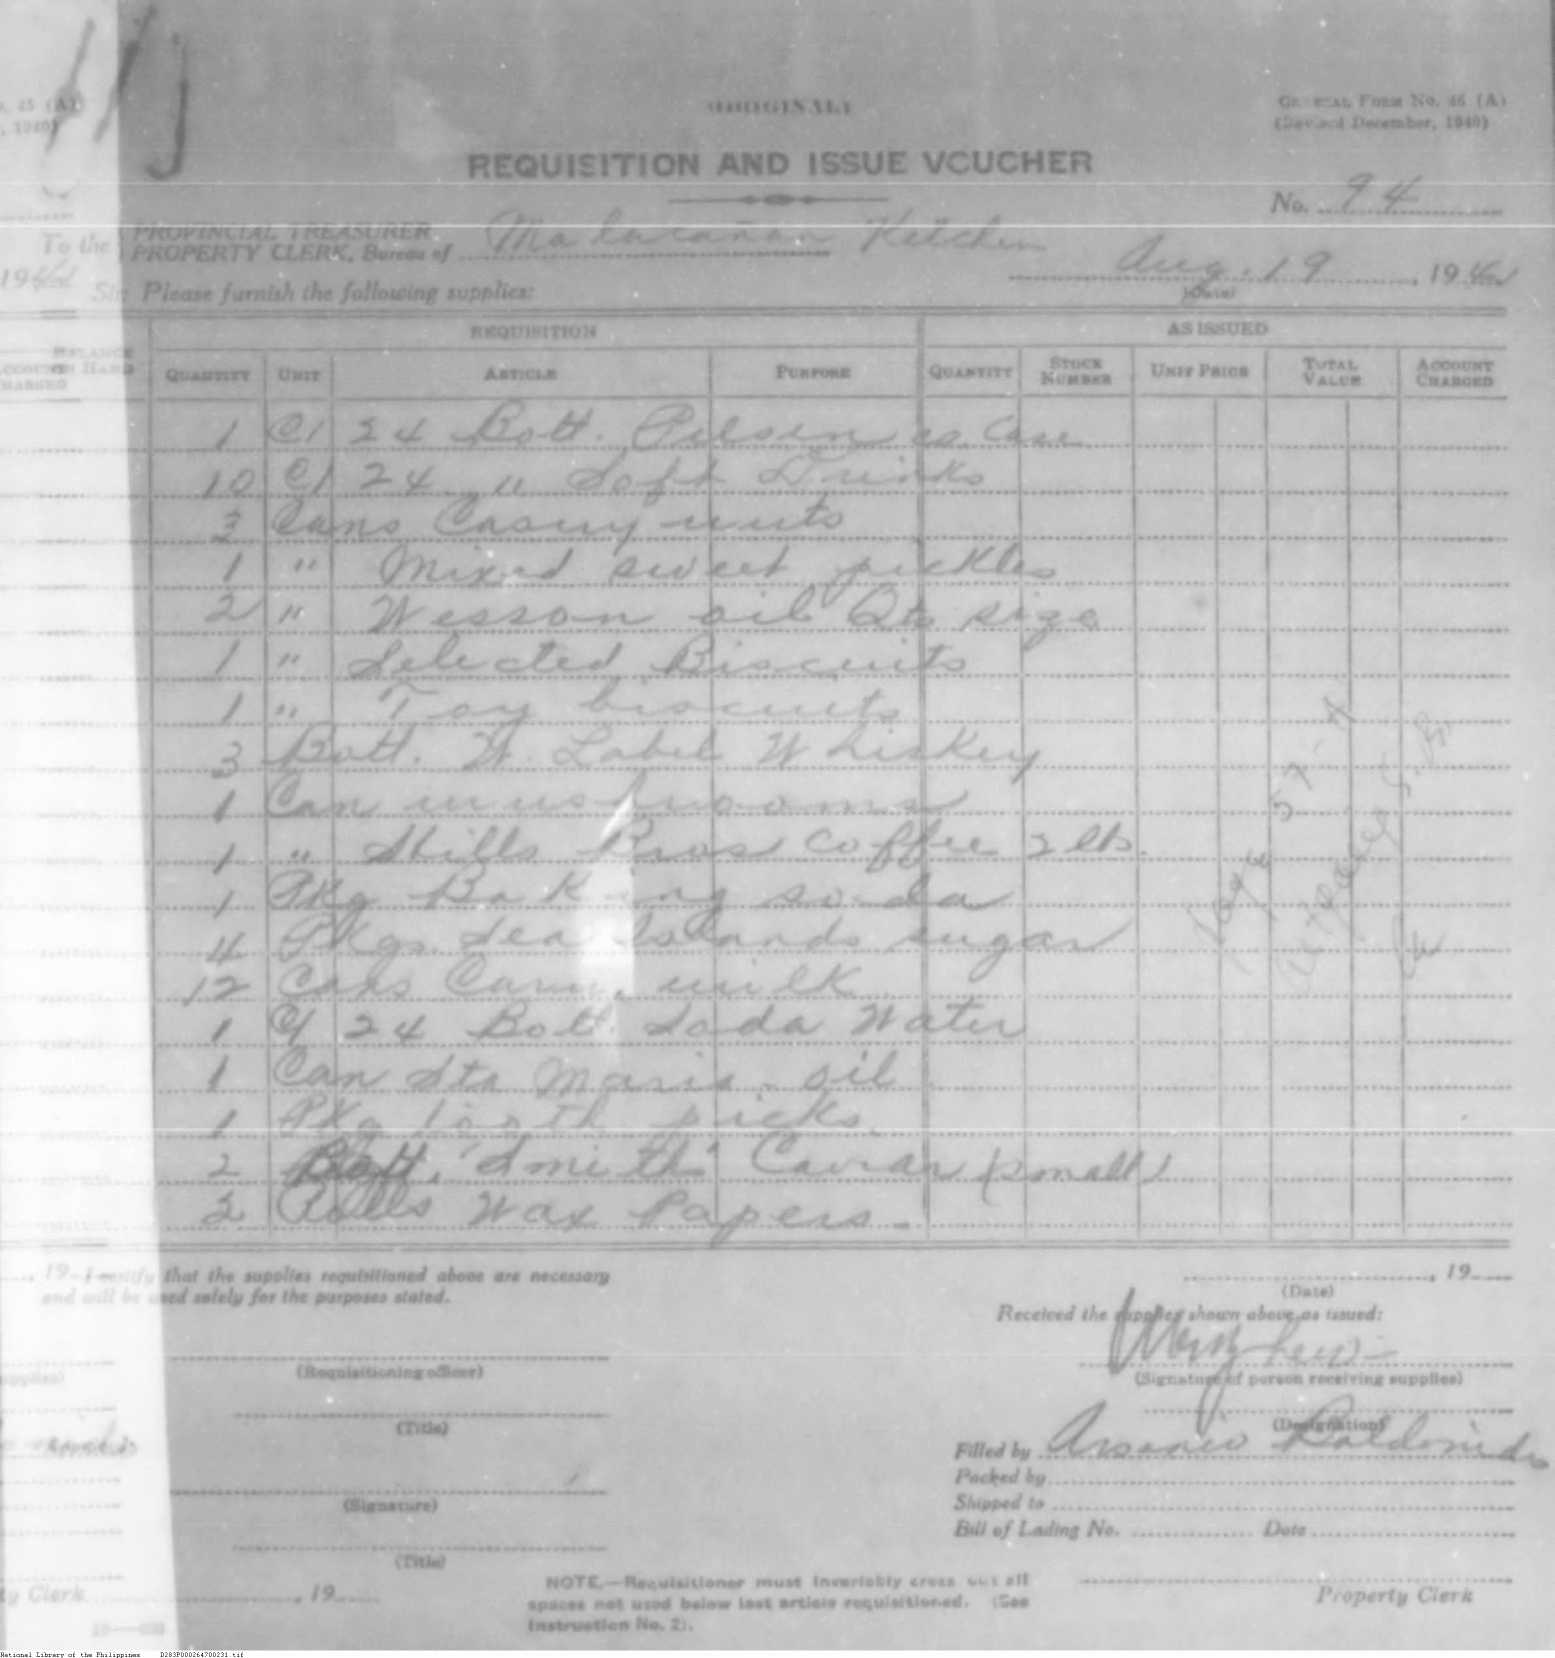 ORIGINAL
GENERAL FORM NO. 45 (A)
(Revised December, 1940)
REQUISITION AND ISSUE VOUCHER
No. 94
PROVINCIAL TREASURER
To the PROPERTY CLERK, Bureau of Malacañan Kitchen
Aug. 19, 19
(Date)
Sir: Please furnish the following supplies:
REQUISITION AS ISSUED
QUANTITY UNIT ARTICLE PURPOSE QUANTITY STOCK NUMBER UNIT PRICE TOTAL VALUE ACCOUNT CHARGED
1 C/ 24 Bott. Pilsen Case
10 C/ 24 " Soft Drinks
3 Cans Casuy nuts
1 " Mixed sweet pickles
2 " Wesson oil Qts size
1 " Selected Biscuits
1 " Toy biscuits
3 Bott. W. Label Whiskey
1 Can mushrooms
1 " Hills Bros Coffee 2 lbs.
1 Pkg Baking soda
4 Pkgs. Sea Islands sugar
12 Cans Carn. milk
1 C/ 24 Bott. Soda Water
1 Can Sta Maria oil
1 Pkg tooth picks.
2 Bott. "Smith" Caviar (small)
2 Rolls Wax Papers.
I certify that the supplies requisitioned above are necessary
and will be used solely for the purposes stated.
, 19
(Date)
Received the supplies shown above as issued:
(Requisitioning officer)
(Signature of person receiving supplies)
(Title)
(Designation)
Filled by Arsenio
Packed by
Shipped to
(Signature)
Bill of Lading No. Date
(Title)
, 19
NOTE.—Requisitioner must invariably cross out all
spaces not used below last article requisitioned. (See
Instruction No. 2).
Property Clerk
National Library of the Philippines D283P000264700231.tif